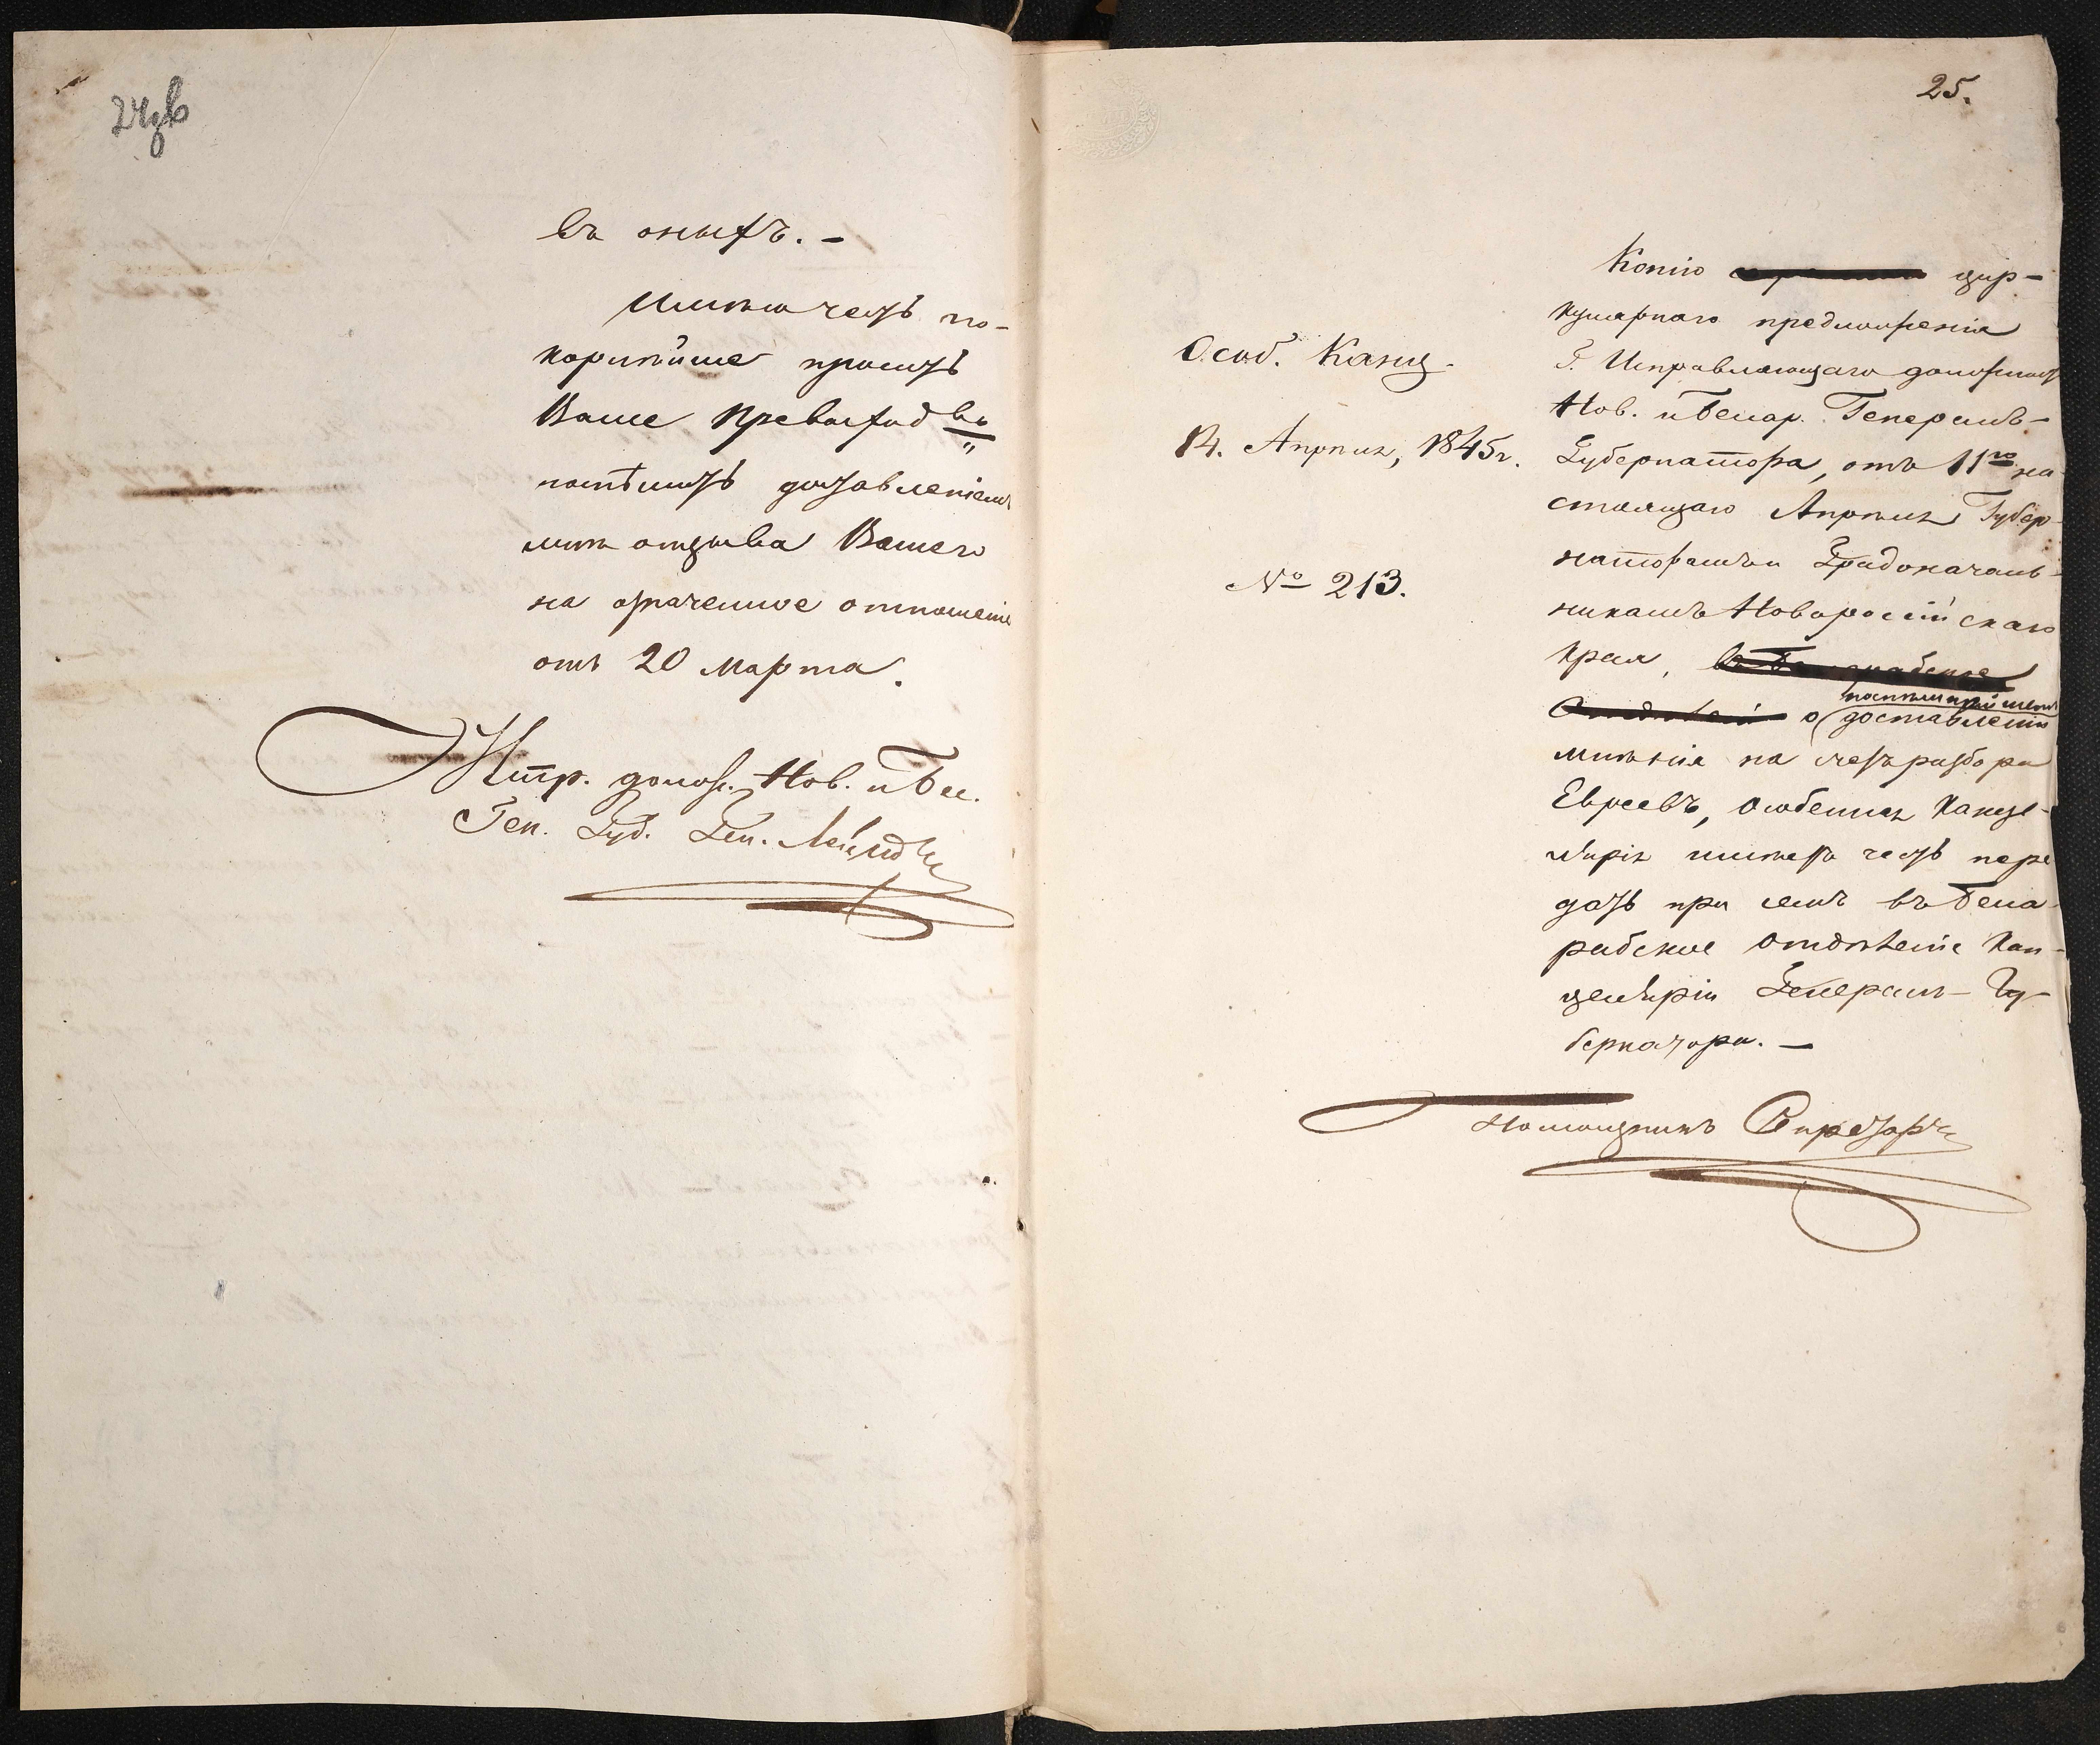 24об
въ оныхъ. –
Имѣю честь по-
корнѣйше просить
Ваше Превосход во
поспѣшить доставленіемъ
мнѣ отзыва Вашего
на означенное отношеніе
отъ 20 Марта.
Испр. должн. Нов. и Бес.
Ген. Губ. Ген. Лейт.
25.
Особ. Канц.
14. Апрѣля, 1845 г.
№ 213.
Копію цир-
кулярнаго предложенія
Г. Исправляющаго должность
Нов. и Бессар. Генералъ-
Губернатора, отъ 11го на-
стоящаго Апрѣля Губер-
наторамъ и Градоначаль-
никамъ Новороссійскаго
Края,
поспѣшнѣйшемъ
о доставленіи
мнѣнія на счетъ разбора
Евреевъ, Особенная Канце-
лярія имѣетъ честь пере
дать при семъ въ Бесса-
рабское Отдѣленіе Кан-
целяріи Генералъ-Гу-
бернатора. –
Помощникъ Директора